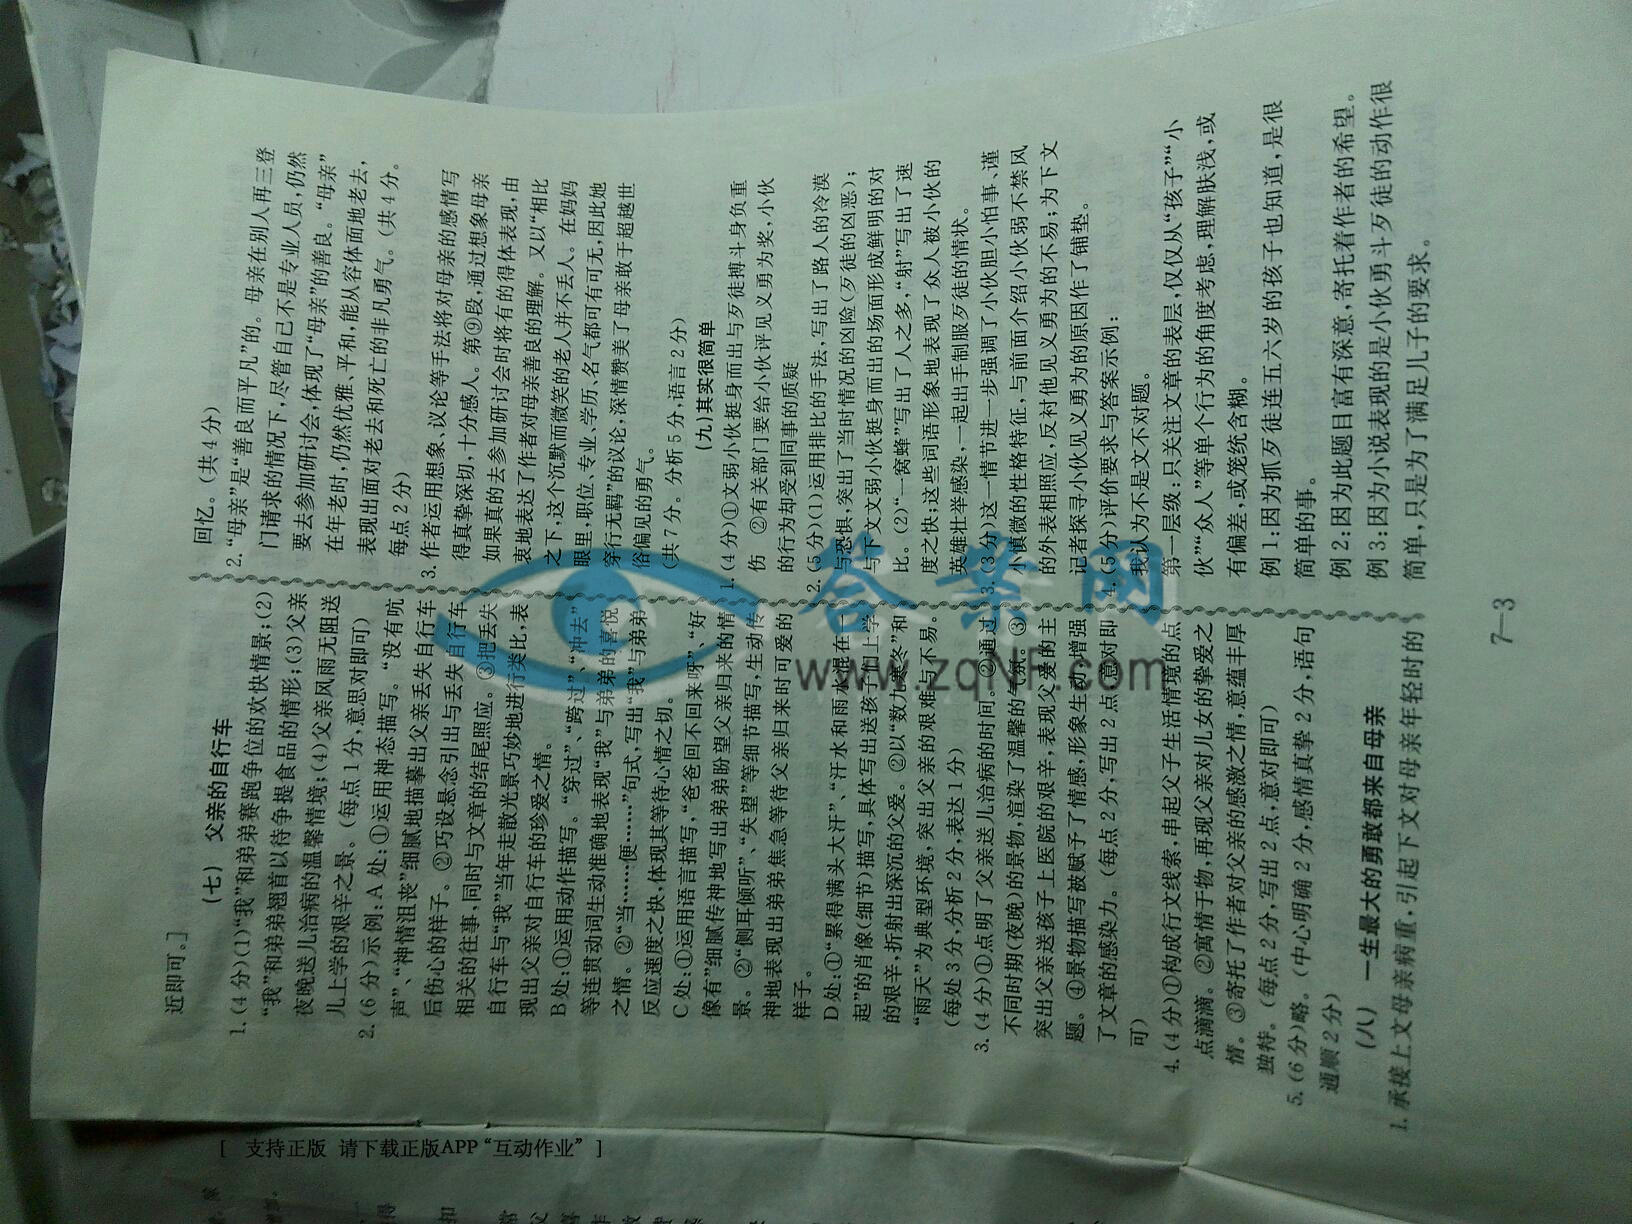 近即可。]
(七) 父亲的自行车
1.(4分)(1)“我”和弟弟赛跑争位的欢快情景;(2)
“我”和弟弟翘首以待争提食品的情形;(3)父亲
夜晚送儿治病的温馨情境;(4)父亲风雨无阻送
儿上学的艰辛之景。(每点1分,意思对即可)
2.(6分)示例:A处:①运用神态描写。“没有吭
声”、“神情沮丧”细腻地描摹出父亲丢失自行车
后伤心的样子。②巧设悬念引出与丢失自行车
相关的往事,同时与文章的结尾照应。③把丢失
自行车与“我”当年走散光景巧妙地进行类比,表
现出父亲对自行车的珍爱之情。
B处:①运用动作描写。“穿过”、“跨过”、“冲去”
等连贯动词生动准确地表现“我”与弟弟的喜悦
之情。②“当……便……”句式,写出“我”与弟弟
反应速度之快,体现其等待心情之切。
C处:①运用语言描写,“爸爸回不回来呀”、“好
像有”细腻传神地写出弟弟盼望父亲归来的情
景。②“侧耳倾听”、“失望”等细节描写,生动传
神地表现出弟弟焦急等待父亲归来时可爱的
样子。
D处:①“累得满头大汗”、“汗水和雨水混在一
起”的肖像(细节)描写,具体写出送孩子们上学
的艰辛,折射出深沉的父爱。②以“数九寒冬”和
“雨天”为典型环境,突出父亲的艰难与不易。
(每处3分,分析2分,表达1分)
3.(4分)①点明了父亲送儿治病的时间。②通过
不同时期(夜晚)的景物,渲染了温馨的气氛。③
突出父亲送孩子上医院的艰辛,表现父爱的主
题。④景物描写被赋予了情感,形象生动,增强
了文章的感染力。(每点2分,写出2点,意对即
可)
4.(4分)①构成行文线索,串起父子生活情境的点
点滴滴。②寓情于物,再现父亲对儿女的挚爱之
情。③寄托了作者对父亲的感激之情,意蕴丰厚
独特。(每点2分,写出2点,意对即可)
5.(6分)略。(中心明确2分,感情真挚2分,语句
通顺2分)
(八) 一生最大的勇敢都来自母亲
1.承接上文母亲病重,引起下文对母亲年轻时的
回忆。(共4分)
2.“母亲”是“善良而平凡”的。母亲在别人再三登
门请求的情况下,尽管自己不是专业人员,仍然
要去参加研讨会,体现了“母亲”的善良。“母亲”
在年老时,仍然优雅、平和,能从容体面地老去,
表现出面对老去和死亡的非凡勇气。(共4分。
每点2分)
3.作者运用想象、议论等手法将对母亲的感情写
得真挚深切,十分感人。第⑨段,通过想象母亲
如果真的去参加研讨会时将有的得体表现,由
衷地表达了作者对母亲善良的理解。又以“相比
之下,这个沉默而微笑的老人并不丢人。在妈妈
眼里,职位、专业、学历、名气都可有可无,因此她
穿行无羁”的议论,深情赞美了母亲敢于超越世
俗偏见的勇气。
(共7分。分析5分,语言2分)
(九)其实很简单
1.(4分)①文弱小伙挺身而出与歹徒搏斗身负重
伤 ②有关部门要给小伙评见义勇为奖,小伙
的行为却受到同事的质疑
2.(5分)(1)运用排比的手法,写出了路人的冷漠
与恐惧,突出了当时情况的凶险(歹徒的凶恶);
与下文文弱小伙挺身而出的场面形成鲜明的对
比。(2)“一窝蜂”写出了人之多,“射”写出了速
度之快;这些词语形象地表现了众人被小伙的
英雄壮举感染,一起出手制服歹徒的情状。
3.(3分)这一情节进一步强调了小伙胆小怕事、谨
小慎微的性格特征,与前面介绍小伙弱不禁风
的外表相照应,反衬他见义勇为的不易;为下文
记者探寻小伙见义勇为的原因作了铺垫。
4.(5分)评价要求与答案示例:
我认为不是文不对题。
第一层级:只关注文章的表层,仅仅从“孩子”“小
伙”“众人”等单个行为的角度考虑,理解肤浅,或
有偏差,或笼统含糊。
例1:因为抓歹徒连五六岁的孩子也知道,是很
简单的事。
例2:因为此题目富有深意,寄托着作者的希望。
例3:因为小说表现的是小伙勇斗歹徒的动作很
简单,只是为了满足儿子的要求。
7-3
答案网
www.zqNF.com
[ 支持正版 请下载正版APP“互动作业” ]